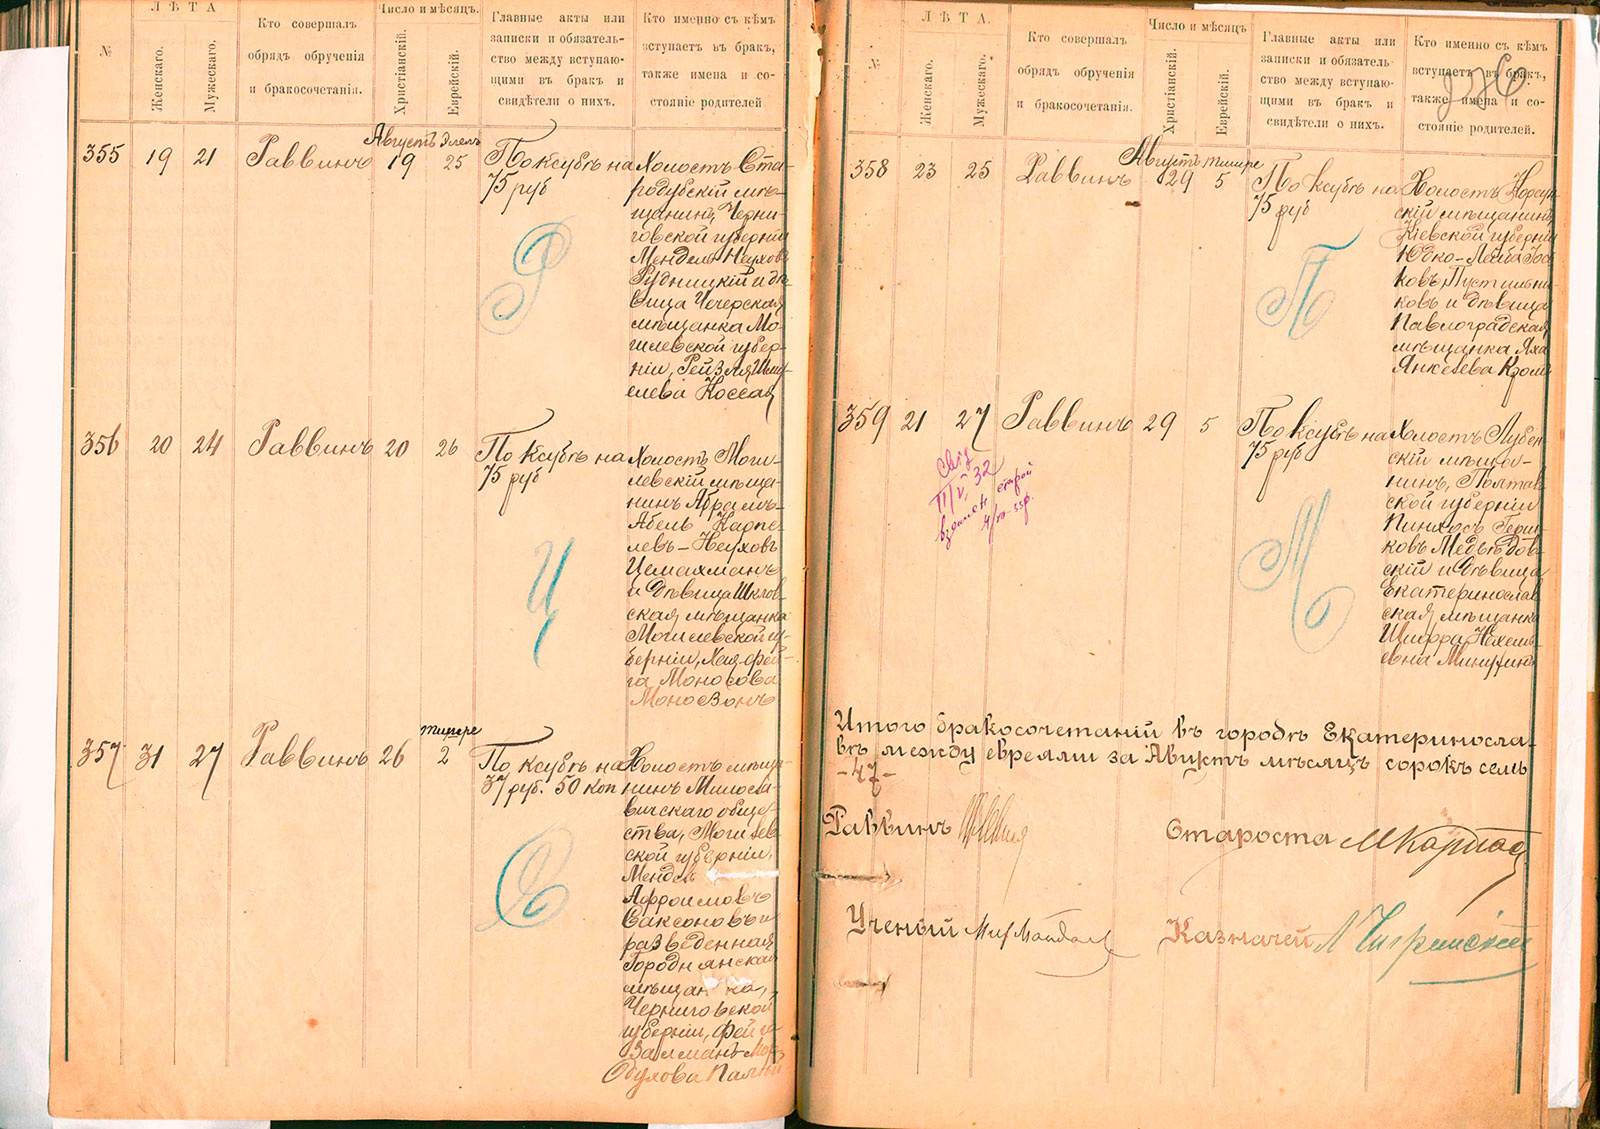 №
ЛѢТА
Женскаго.
Мужескаго.
Кто совершалъ
обрядъ обрученія
и бракосочетанія.
Число и мѣсяцъ.
Христіанскій.
Еврейскій.
Главные акты или
записки и обязатель-
ство между вступаю-
щими въ бракъ и
свидѣтели о нихъ.
Кто именно съ кѣмъ
вступаетъ въ бракъ,
также имена и со-
стояніе родителей
355 19 21 Раввинъ
Августъ 19
Элелъ 25
По ксубѣ на
75 руб
Холостъ Ста-
родубскій мѣ-
щанинъ, Черни-
говской губерніи
Мендель Неуховъ
Рудницкій и дѣ-
вица Чечерская
мѣщанка Мо-
гилевской губер-
ніи, Рейзля Шму-
елева Коссая
Р
356 20 24 Раввинъ 20 26
По ксубѣ на
75 руб
Холостъ Моги-
левскій мѣща-
нинъ Абрамъ-
Абель Карпе-
левъ-Неуховъ
Цемахманъ
и Дѣвица Шклов-
ская мѣщанка
Могилевской гу-
берніи, Хая-фей-
га Моносова
Моносзонъ
Ц
357 31 27 Раввинъ 26
тишре 2
По ксубѣ на
37 руб. 50 коп
Холостъ мѣща-
нинъ Милосла-
вичскаго обще-
ства, Могилев
ской губерніи,
Мендель
Афроимовъ
Саксоновъ и
разведенная
Городнянская
мѣщанка,
Черниговской
губерніи, фейга
Залманъ-Мор-
С
№
ЛѢТА.
Женскаго.
Мужескаго.
Кто совершалъ
обрядъ обрученія
и бракосочетанія.
Число и мѣсяцъ
Христіанскій.
Еврейскій.
Главные акты или
записки и обязатель-
ство между вступаю-
щими въ бракъ и
свидѣтели о нихъ.
Кто именно съ кѣмъ
вступаетъ въ бракъ,
также имена и со-
стояніе родителей.
358 23 25 Раввинъ
Августъ 29
тишре 5
По ксубѣ на
75 руб
Холостъ Корсун-
скій мѣщанинъ
Кіевской губерніи
Юдко-Лейба Іос
ковъ Пустильни-
ковъ и дѣвица
Павлоградская
мѣщанка Хая
Янкелева Кроль
П
359 21 27 Раввинъ 29 5
По ксубѣ на
75 руб
Холостъ Лубен
скій мѣща-
нинъ, Полтав
ской губерніи
Пинхосъ Герш-
ковъ Медвѣдов-
скій и Дѣвица
Екатеринослав
ская мѣщанка
Шифра Нехемь
евна Минушкинъ
М
взамен старой
Итого бракосочетаній въ городѣ Екатериносла-
вѣ между евреями за Августъ мѣсяцъ сорокъ семь
-47-
Раввинъ
Староста М Карпас
Ученый
Казначей Л Чигринскій